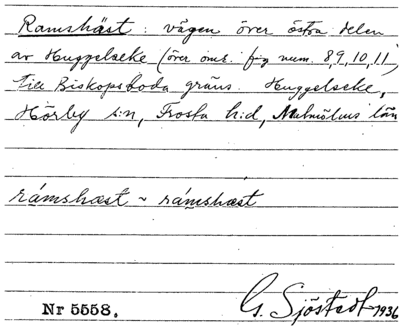 Ramshäst: vägen över östra delen
av Huggelseke (över äms. fig num. 8,9,10,11)
till Biskopsboda gräns. Huggelseke,
Hörby s:n, Frosta h:d, Malmöhus län
rámshæst ~ rámshæst
Nr 5558. G. Sjöstedt 1936